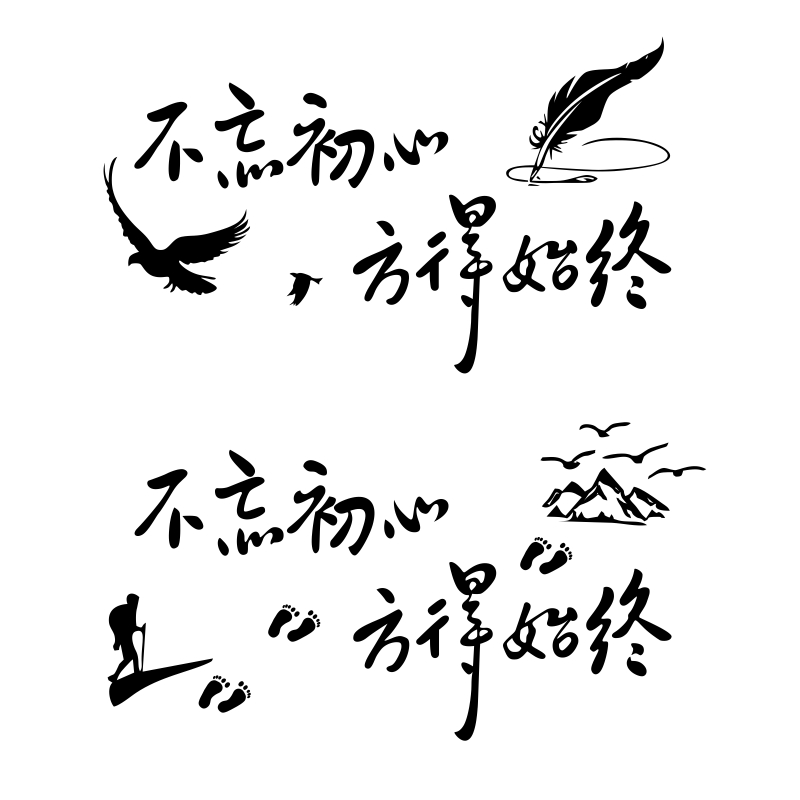 不忘初心
方得始终
不忘初心
方得始终